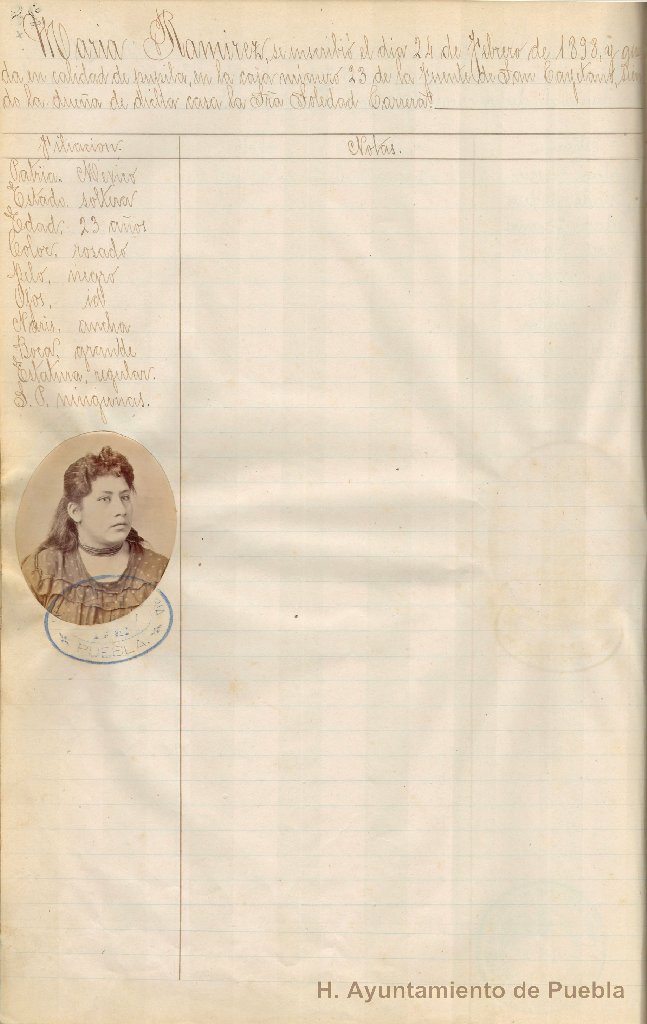 Maria Ramirez, se inscribió el dia 24 de Febrero de 1898, y que
da en calidad de pupila, en la casa numero 23 de la fuente de San Cayetano, sien
do la dueña de dicha casa la Sra Soledad Carrera.
Filiacion.
Notas.
Patria. Mexico
Estado. soltera
Edad. 23 años
Color. rosado
Pelo. negro
Ojos. id
Naris. ancha
Boca. grande
Estatura, regular.
S. P. ningunas.
PUEBLA.
H. Ayuntamiento de Puebla